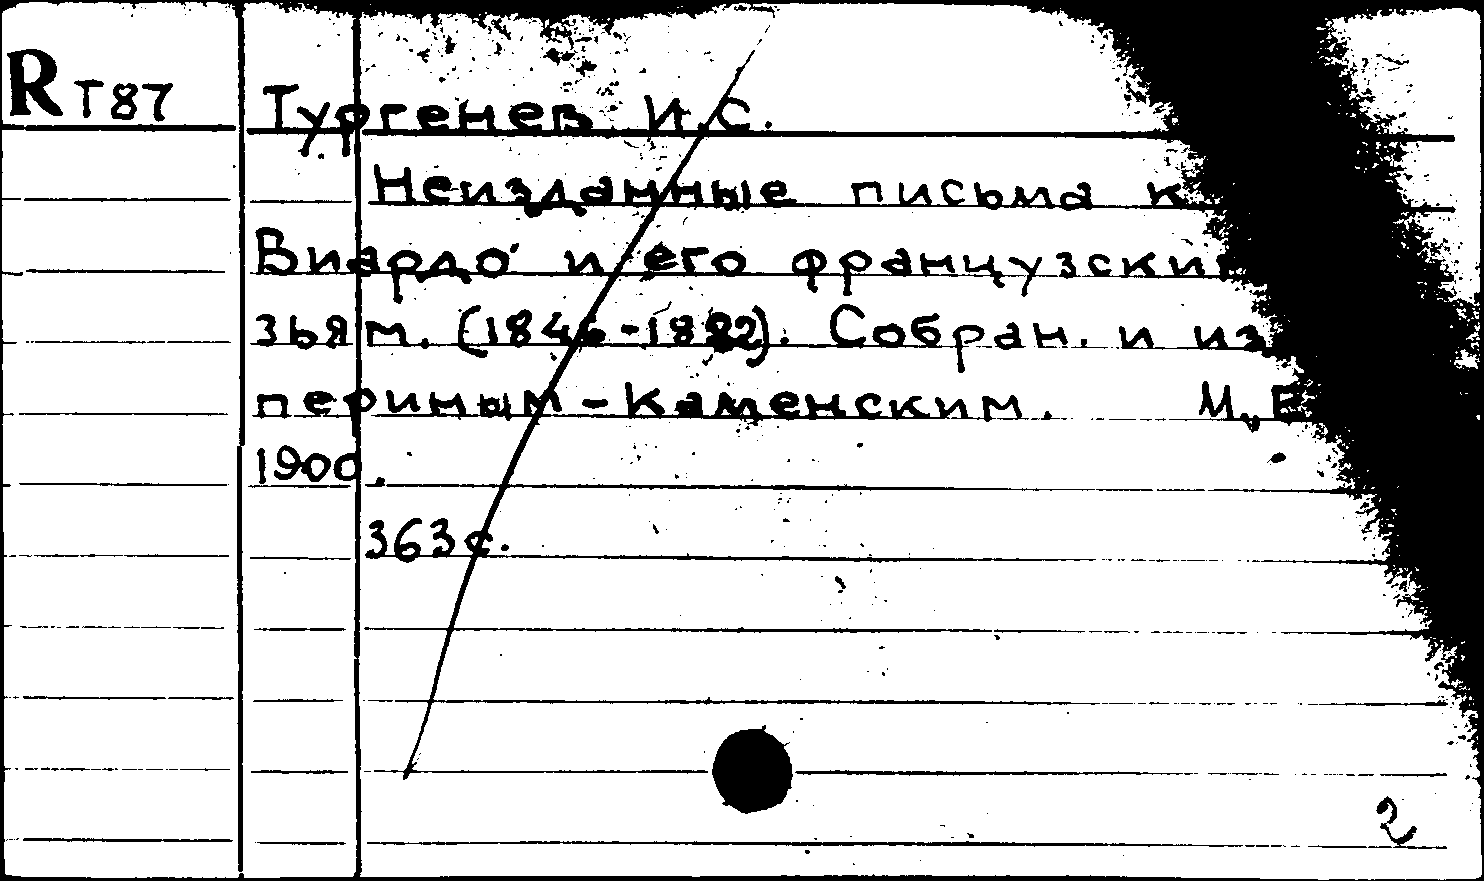 R Т87 Тургенев И.С.
Неизданные письма к
Виардо и его французским
зьям. (1846-1882). Собран. и из
периным-Каменским. М.,
1900.
363 с.
2